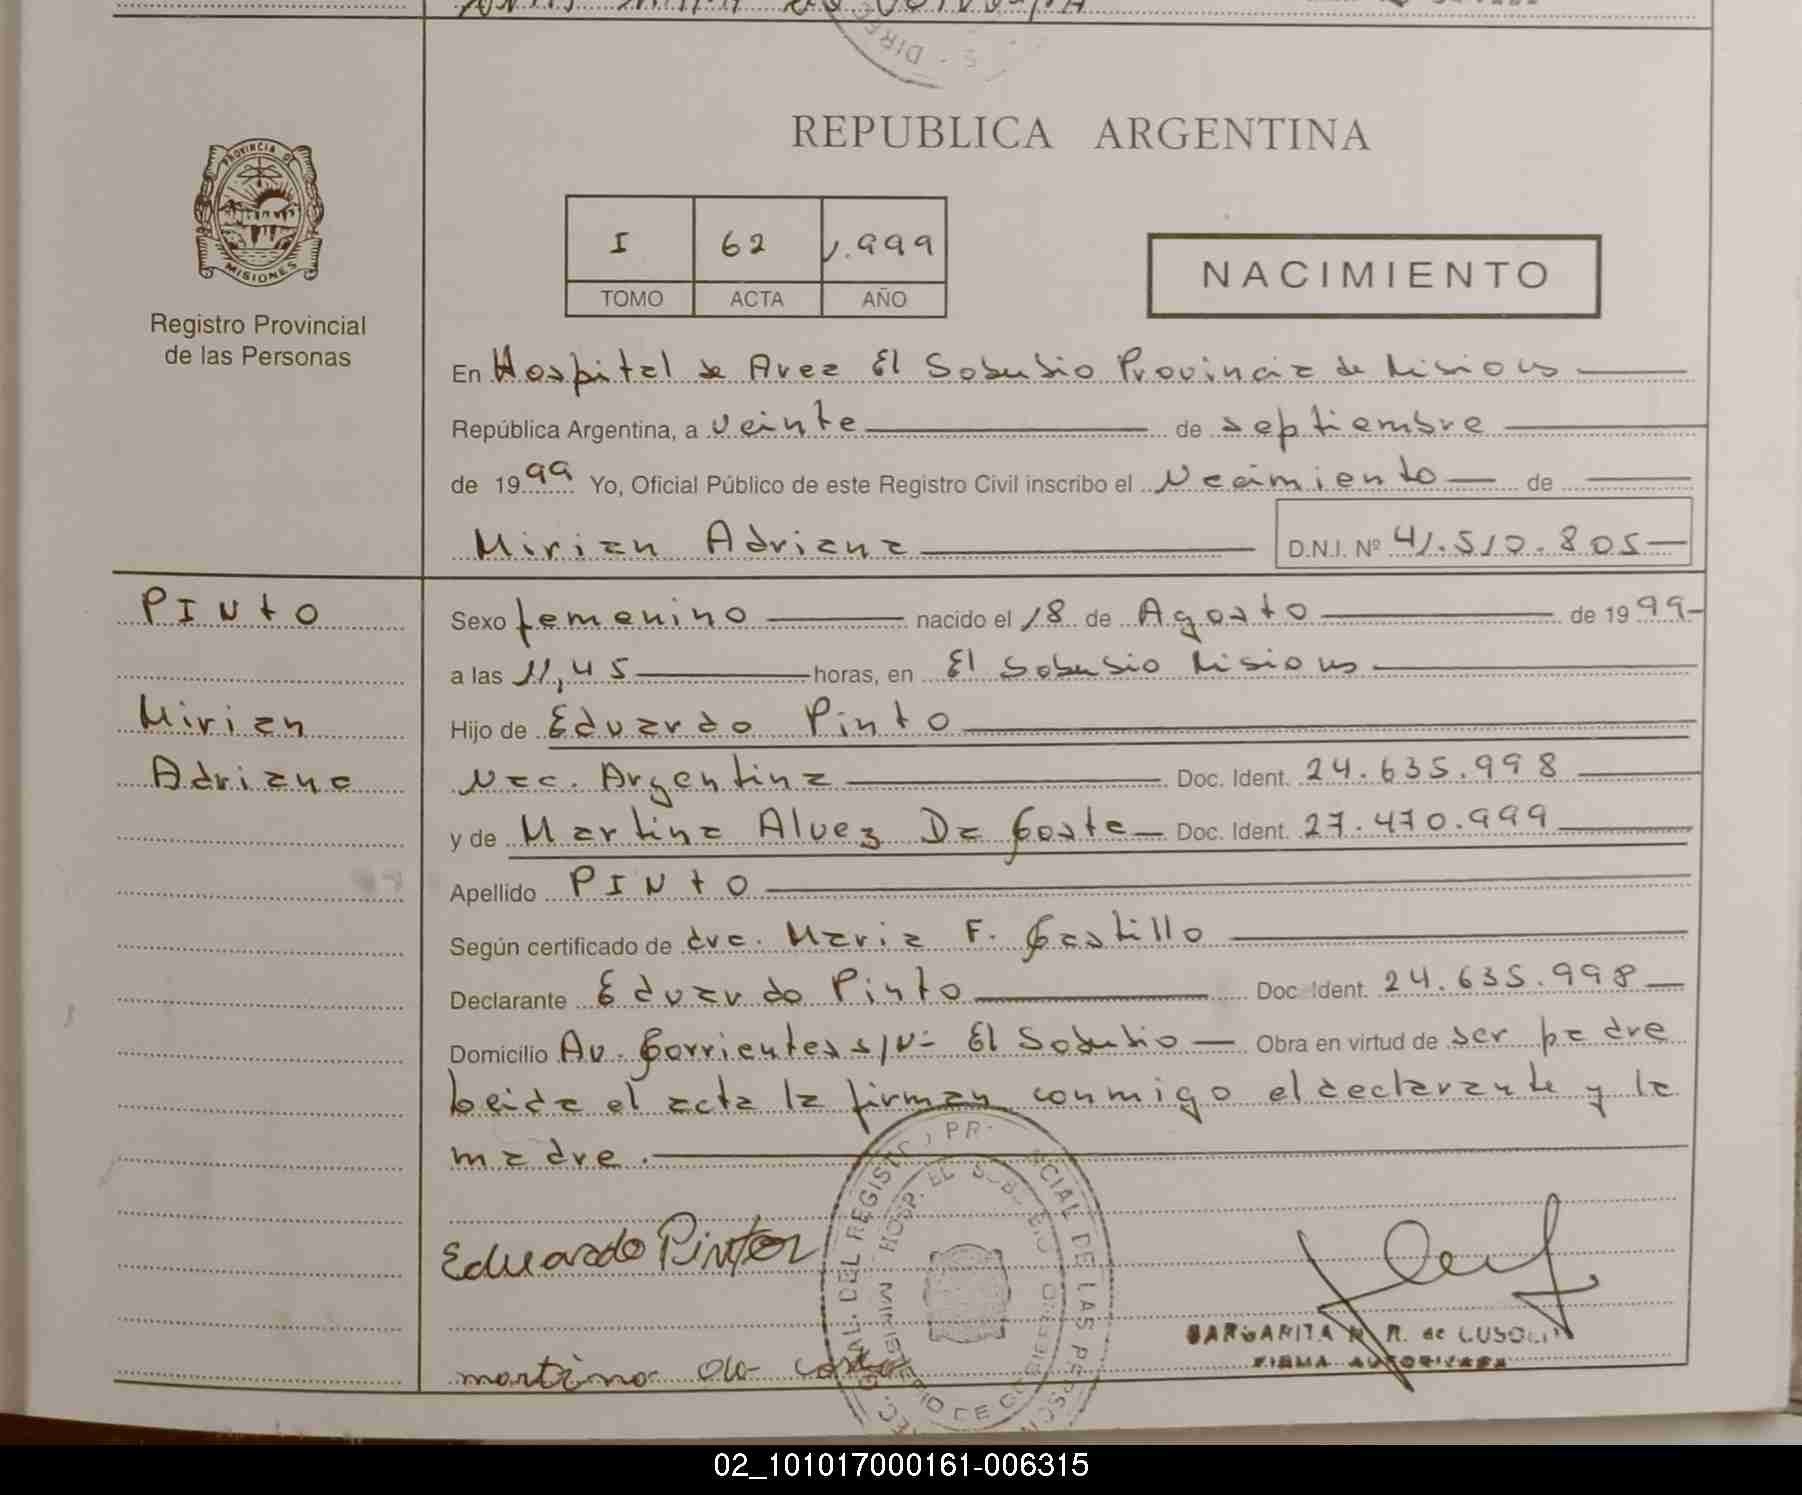 REPUBLICA ARGENTINA
PROVINCIA DE
MISIONES
Registro Provincial
de las Personas
I 62 1.999
TOMO ACTA AÑO
NACIMIENTO
En Hospital de Area El Soberbio Provincia de Misiones
República Argentina, a veinte de septiembre
de 1999 Yo, Oficial Público de este Registro Civil inscribo el Nacimiento de
Mirian Adriana D.N.I. Nº 41.510.805
PINTO
Mirian
Adriana
Sexo femenino nacido el 18 de Agosto de 1999
a las 11,45 horas, en El Soberbio Misiones
Hijo de Eduardo Pinto
Nac. Argentina Doc. Ident. 24.635.998
y de Martina Alvez Da Costa Doc. Ident. 27.470.999
Apellido PINTO
Según certificado de dra. Maria F. Castillo
Declarante Eduardo Pinto Doc. Ident. 24.635.998
Domicilio Av. Corrientes s/Nº El Soberbio Obra en virtud de ser padre
leida el acta la firman conmigo el declarante y la
madre.
Eduardo Pinto
martina da costa
MARGARITA R. de
FIRMA AUTORIZADA
02_101017000161-006315